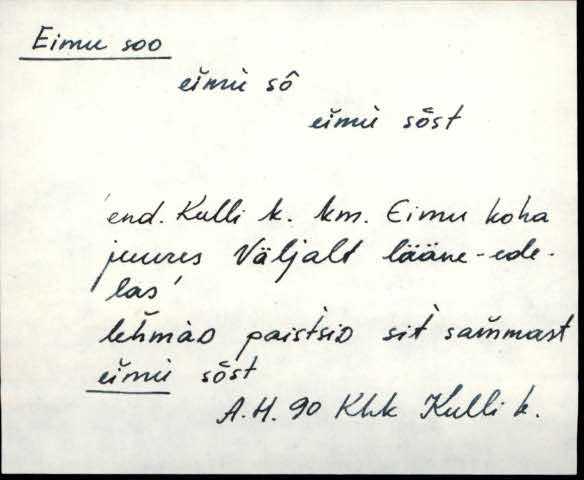 Eimu soo
eĭmù sô
eĭmù sŏ̄st
'end. Kulli k. km. Eimu koha
juures Väljalt lääne-ede-
las'
lèh̆màᴅ paìstsiᴅ sìt sam̆mast
eĭmù sŏ̄st
A.H. 90 Khk Kulli k.